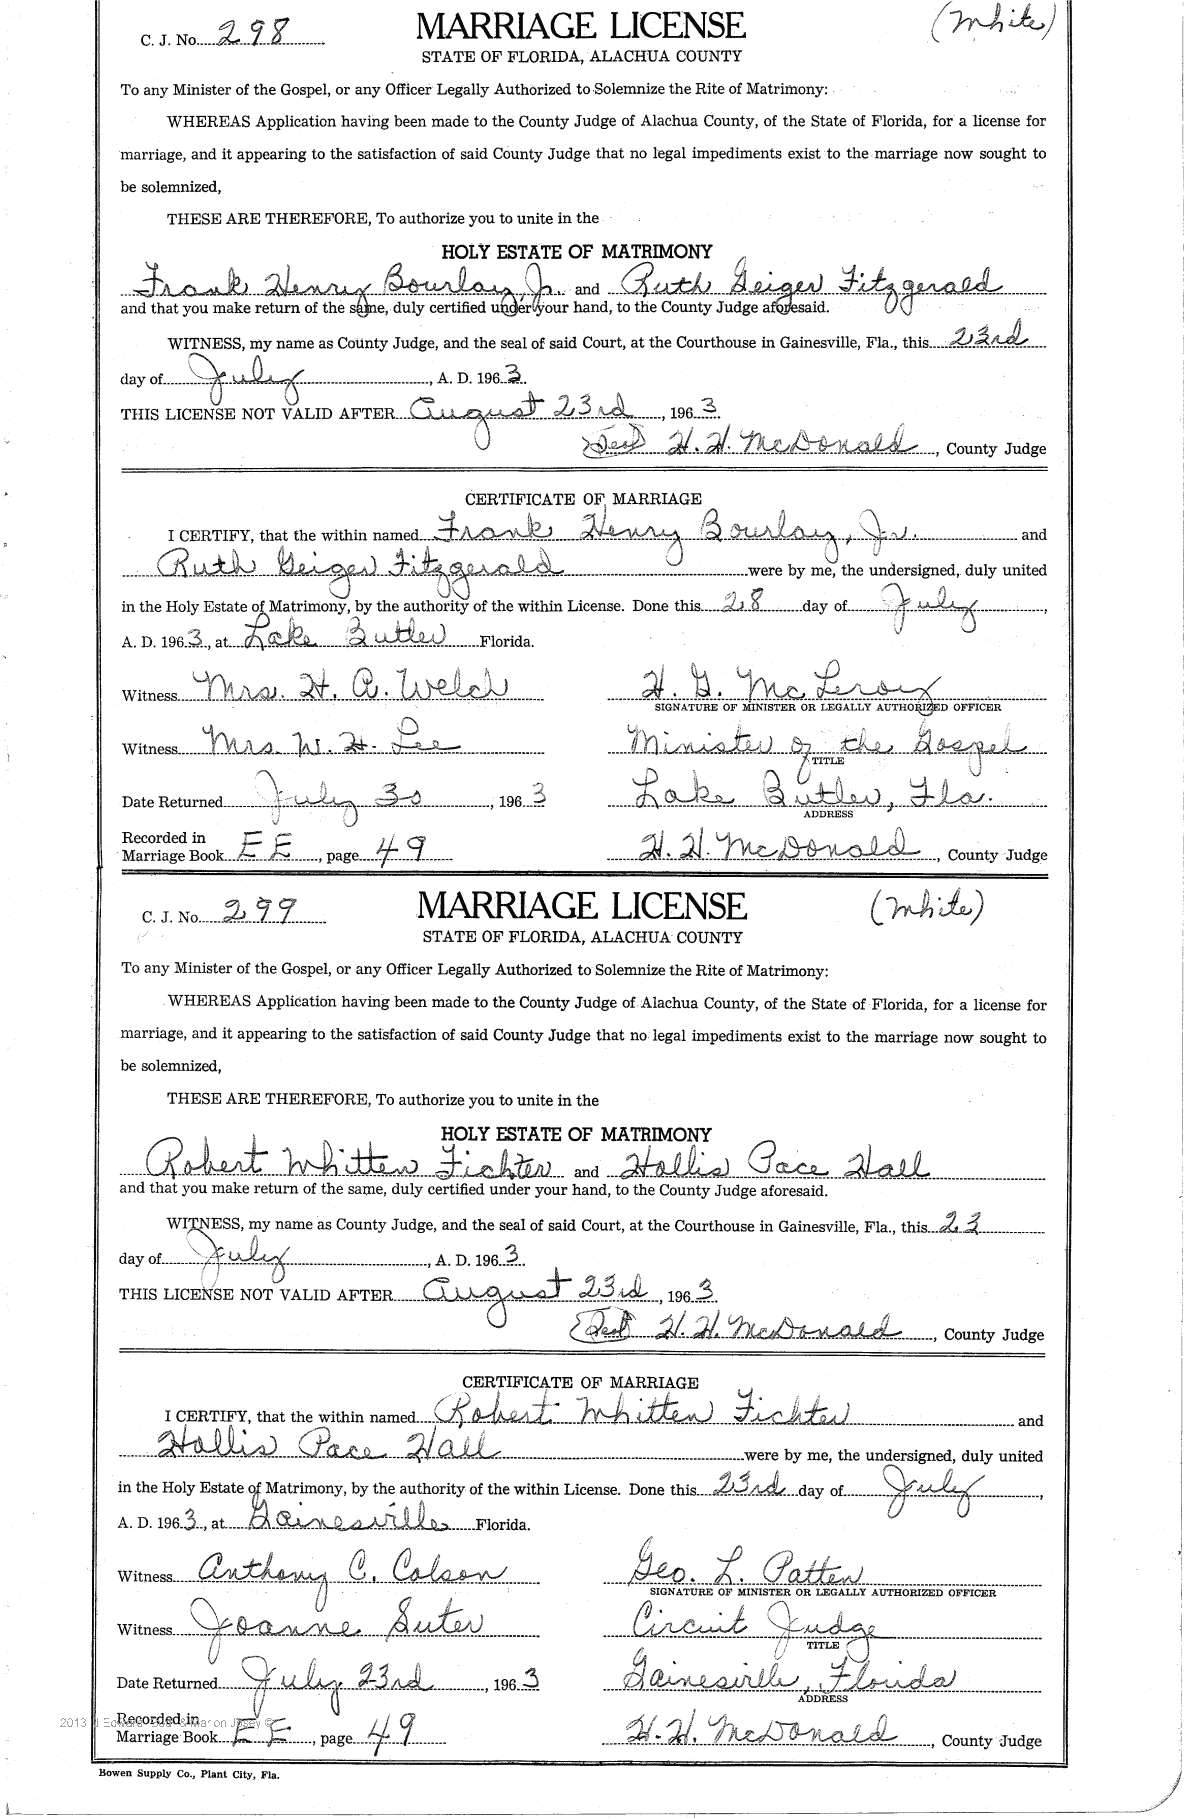 C. J. No. 298 MARRIAGE LICENSE (White)
STATE OF FLORIDA, ALACHUA COUNTY
To any Minister of the Gospel, or any Officer Legally Authorized to Solemnize the Rite of Matrimony:
WHEREAS Application having been made to the County Judge of Alachua County, of the State of Florida, for a license for
marriage, and it appearing to the satisfaction of said County Judge that no legal impediments exist to the marriage now sought to
be solemnized,
THESE ARE THEREFORE, To authorize you to unite in the
HOLY ESTATE OF MATRIMONY
Frank Henry Bourlay, Jr. and Ruth Geiger Fitzgerald
and that you make return of the same, duly certified under your hand, to the County Judge aforesaid.
WITNESS, my name as County Judge, and the seal of said Court, at the Courthouse in Gainesville, Fla., this 23rd
day of July, A. D. 1963.
THIS LICENSE NOT VALID AFTER August 23rd, 1963
(Seal) H. H. McDonald, County Judge
CERTIFICATE OF MARRIAGE
I CERTIFY, that the within named Frank Henry Bourlay, Jr. and
Ruth Geiger Fitzgerald were by me, the undersigned, duly united
in the Holy Estate of Matrimony, by the authority of the within License. Done this 28 day of July,
A. D. 1963, at Lake Butler Florida.
Witness Mrs. H. A. Welch H. G. McLeroy
SIGNATURE OF MINISTER OR LEGALLY AUTHORIZED OFFICER
Witness Mrs W. H. Lee Minister of the Gospel
TITLE
Date Returned July 30, 1963 Lake Butler, Fla.
ADDRESS
Recorded in
Marriage Book EE, page 49 H. H. McDonald, County Judge
C. J. No. 299 MARRIAGE LICENSE (White)
STATE OF FLORIDA, ALACHUA COUNTY
To any Minister of the Gospel, or any Officer Legally Authorized to Solemnize the Rite of Matrimony:
WHEREAS Application having been made to the County Judge of Alachua County, of the State of Florida, for a license for
marriage, and it appearing to the satisfaction of said County Judge that no legal impediments exist to the marriage now sought to
be solemnized,
THESE ARE THEREFORE, To authorize you to unite in the
HOLY ESTATE OF MATRIMONY
Robert Whitten Fichter and Hollis Pace Hall
and that you make return of the same, duly certified under your hand, to the County Judge aforesaid.
WITNESS, my name as County Judge, and the seal of said Court, at the Courthouse in Gainesville, Fla., this 23
day of July, A. D. 1963.
THIS LICENSE NOT VALID AFTER August 23rd, 1963
(Seal) H. H. McDonald, County Judge
CERTIFICATE OF MARRIAGE
I CERTIFY, that the within named Robert Whitten Fichter and
Hollis Pace Hall were by me, the undersigned, duly united
in the Holy Estate of Matrimony, by the authority of the within License. Done this 23rd day of July,
A. D. 1963, at Gainesville Florida.
Witness Anthony C. Colson Geo. L. Patten
SIGNATURE OF MINISTER OR LEGALLY AUTHORIZED OFFICER
Witness Joanne Suter Circuit Judge
TITLE
Date Returned July 23rd, 1963 Gainesville, Florida
ADDRESS
Recorded in
Marriage Book EE, page 49 H. H. McDonald, County Judge
Bowen Supply Co., Plant City, Fla.